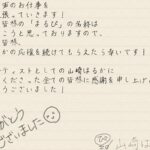 声のお仕事を
張っていきます！
皆様の「まるび」の名称は
こうと思っておりますので、
皆様、
かの応援を続けてもらえたら幸いです！
ティストとしての山崎はるかに
くださった全ての皆様に感謝を申し上げ
うございました！
がとう
ございました
山崎は